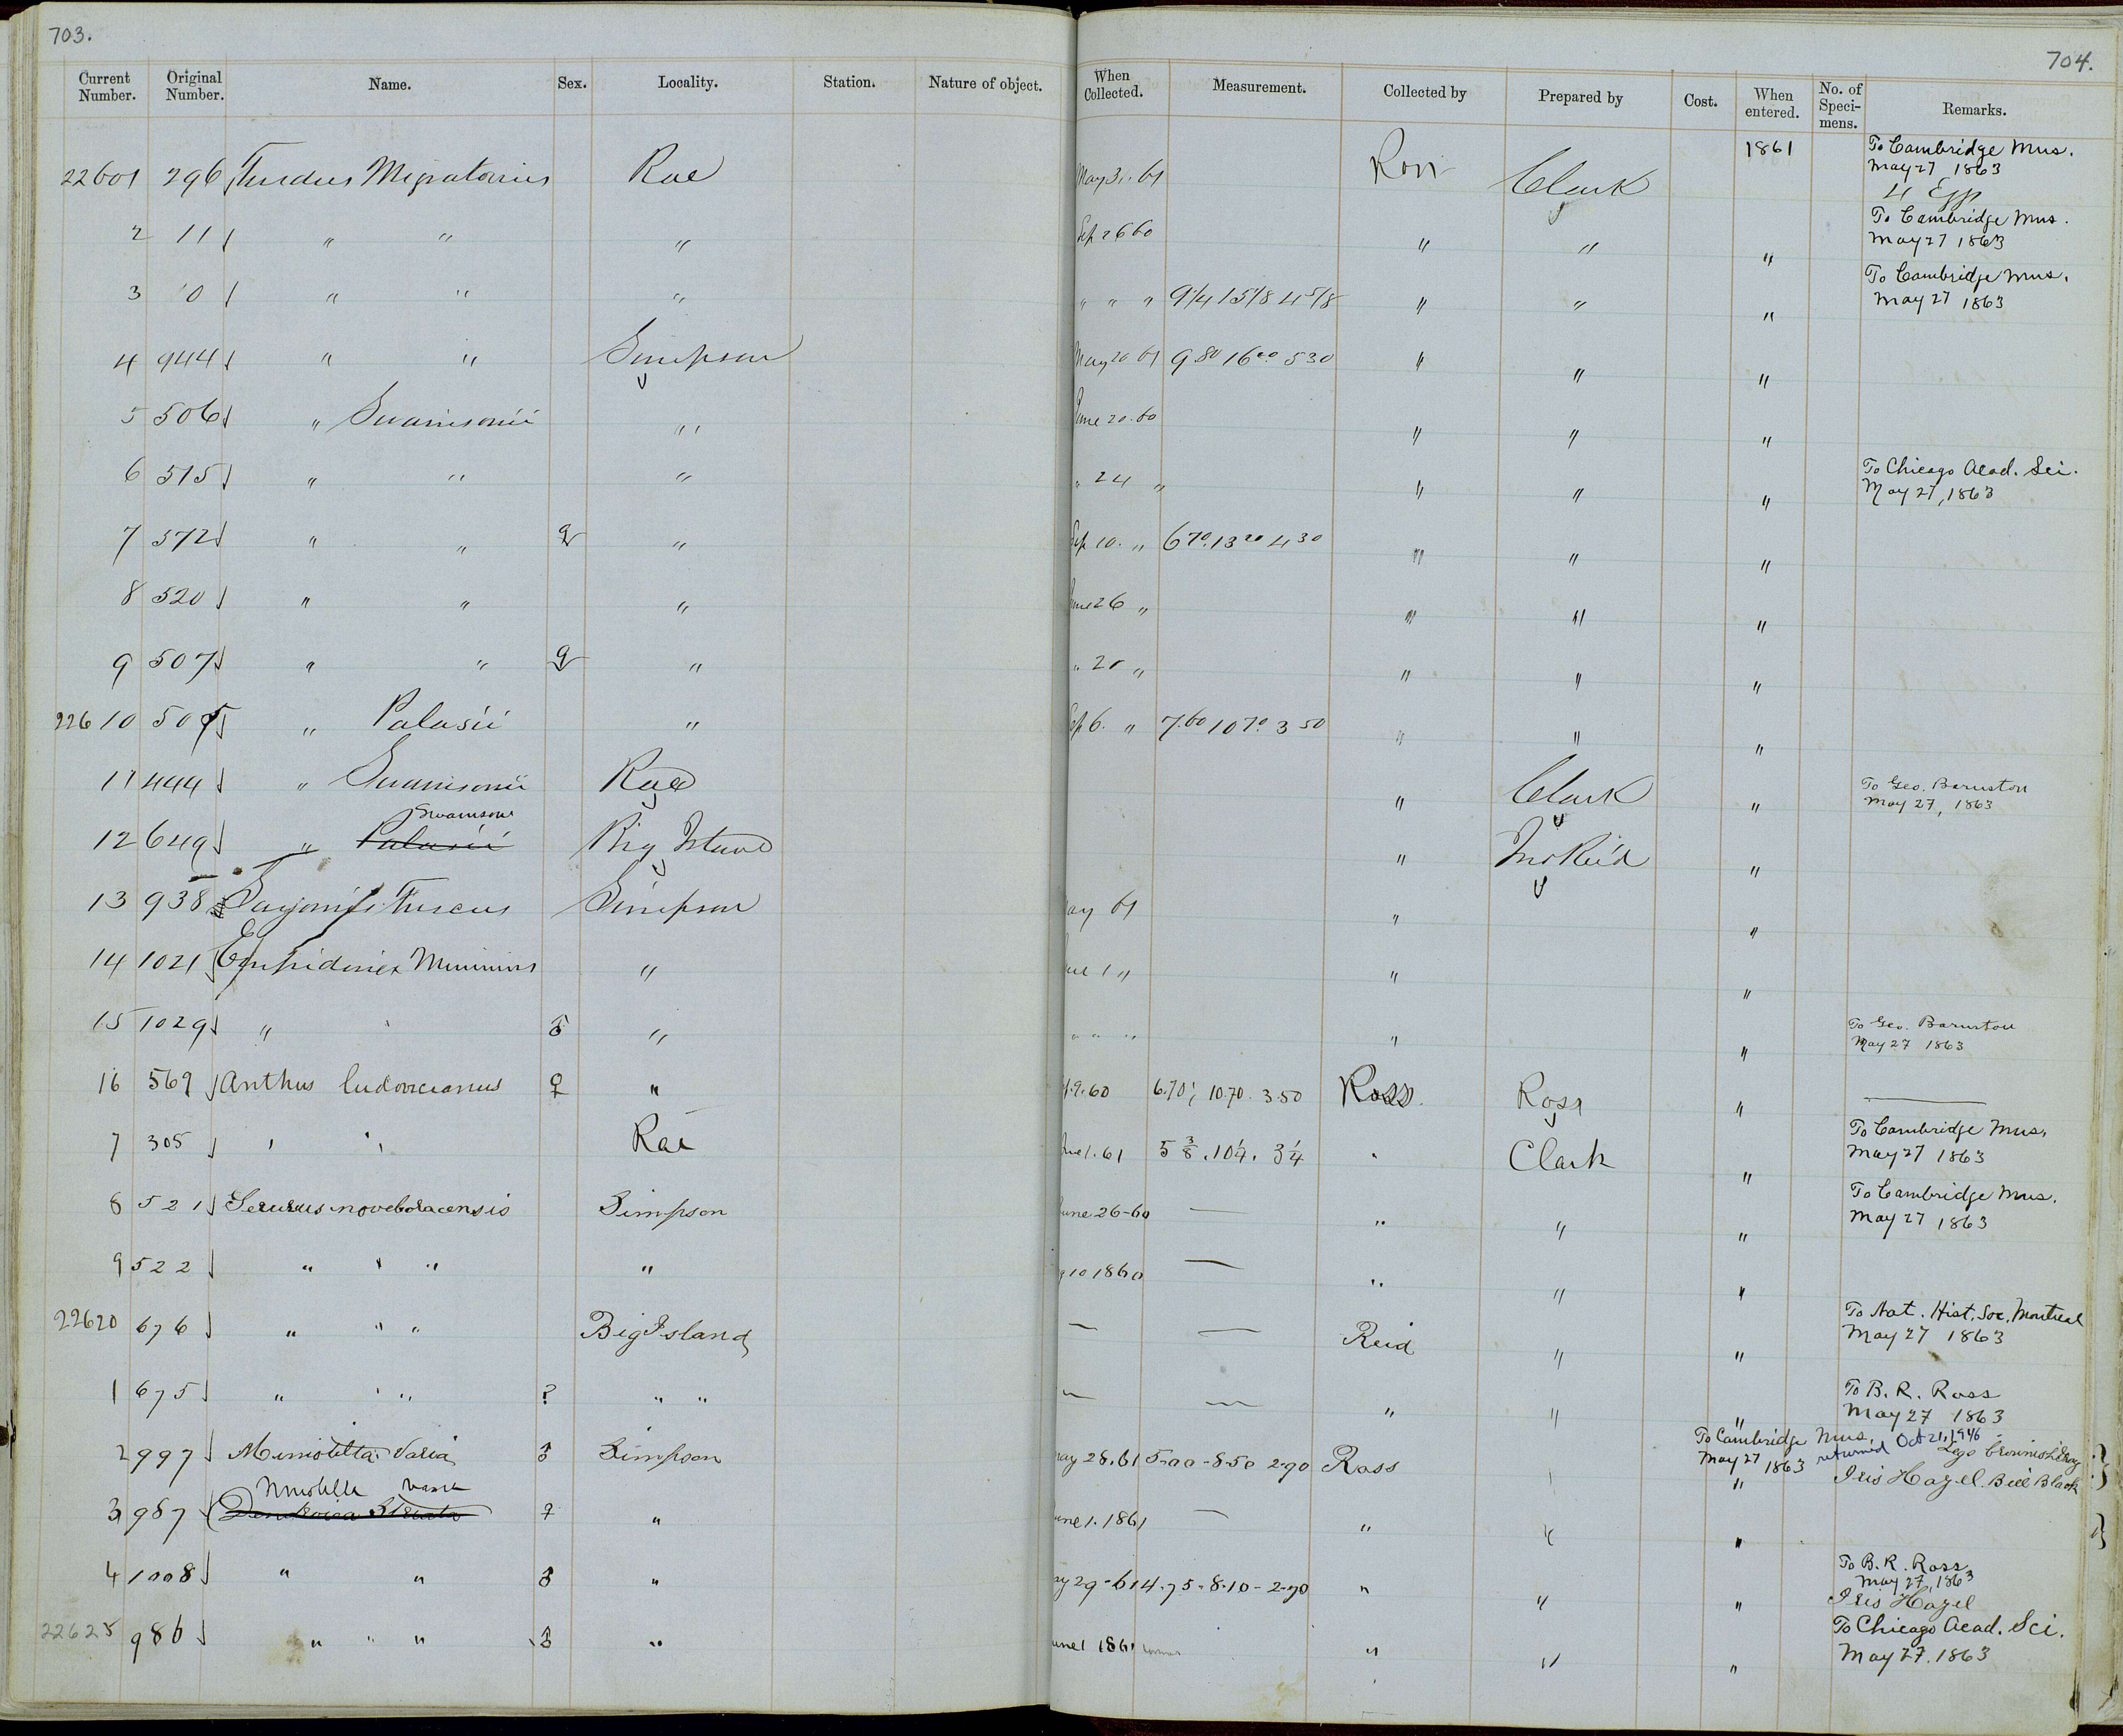 703.
704.
Current Number. Original Number. Name. Sex. Locality. Station. Nature of object. When Collected. Measurement. Collected by Prepared by Cost. When entered. No. of Speci-mens. Remarks.
22601 296 Turdus Migratorius Rae May 31. 61 Ross Clark 1861 To Cambridge Mus. May 27, 1863 4 Eggs
2 11 " " " Sep 26 60 " " " To Cambridge Mus. May 27 1863
3 10 " " " " " " 9 1/4 15 1/8 4 5/8 " " " To Cambridge Mus. May 27 1863
4 944 " " Simpson May 20 61 9.80 16.00 5.30 " " "
5 506 " Swainsonii " June 20. 60 " " "
6 515 " " " " 24 " " " " To Chicago Acad. Sci. May 27, 1863
7 572 " " ♀ " Sep 10. " 6.70. 13.20 4.30 " " "
8 520 " " " June 26 " " " "
9 507 " " ♀ " " 20 " " " "
22610 505 " Palasii " Sep 6. " 7.60 10 70 3 50 " " "
11 444 " Swainsonii Rae " Clark " To Geo. Barnston May 27, 1863
Swainsoni
12 649 " Palasii Big Island " Jno Reid "
13 938 Sayornis Fuscus Simpson May 61 " "
14 1021 Empidonax Minimus " June 1 " " "
15 1029 " " ♂ " " " " " " To Geo. Barnston May 27 1863
16 569 Anthus ludovicianus ♀ " 9. 60 6.70; 10.70. 3.50 Ross. Ross "
7 305 " " Rae June 1. 61 5 3/8. 10 1/4. 3 1/4 " Clark " To Cambridge Mus. May 27 1863
8 521 Seiurus noveboracensis Simpson June 26-60 — " " " To Cambridge Mus. May 27 1863
9 522 " " " " 10 1860 — " " "
22620 676 " " " Big Island — — Reid " " To Nat. Hist. Soc. Montreal May 27 1863
1 675 " " " ? " " — — " " " To B. R. Ross May 27 1863
2 997 Mniotilta Varia ♂ Simpson May 28. 61 5.00-8.50 2.90 Ross " " To Cambridge Mus. May 27 1863 returned Oct 21, 1946 Legs Brownish Iris Hazel. Bill Black
Mniotilta varia
3 987 Dendroica Striata ♀ " June 1. 1861 — " " "
4 1008 " " ♂ " May 29-61 4.75-8.10-2.90 " " " To B. R. Ross May 27, 1863 Iris Hazel
22625 986 " " " ♂ " June 1 1861 " " " To Chicago Acad. Sci. May 27. 1863